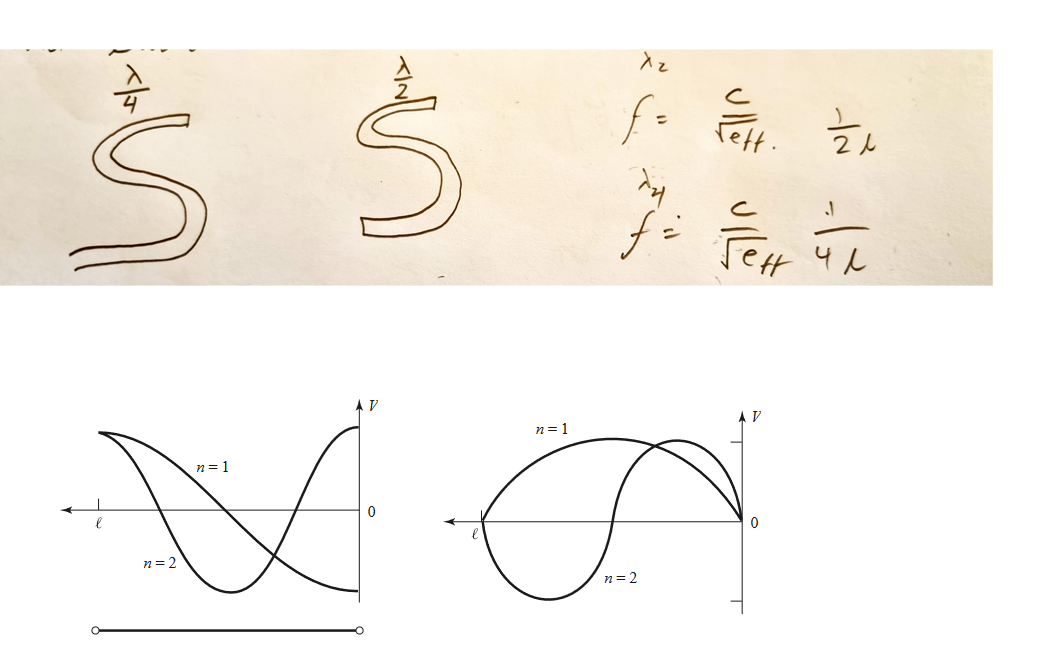 λ/4
λ/2
λ2
f = c/√eff. 1/2l
λ4
f = c/√eff 1/4l
V
n = 1
0
ℓ
n = 2
V
n = 1
0
ℓ
n = 2